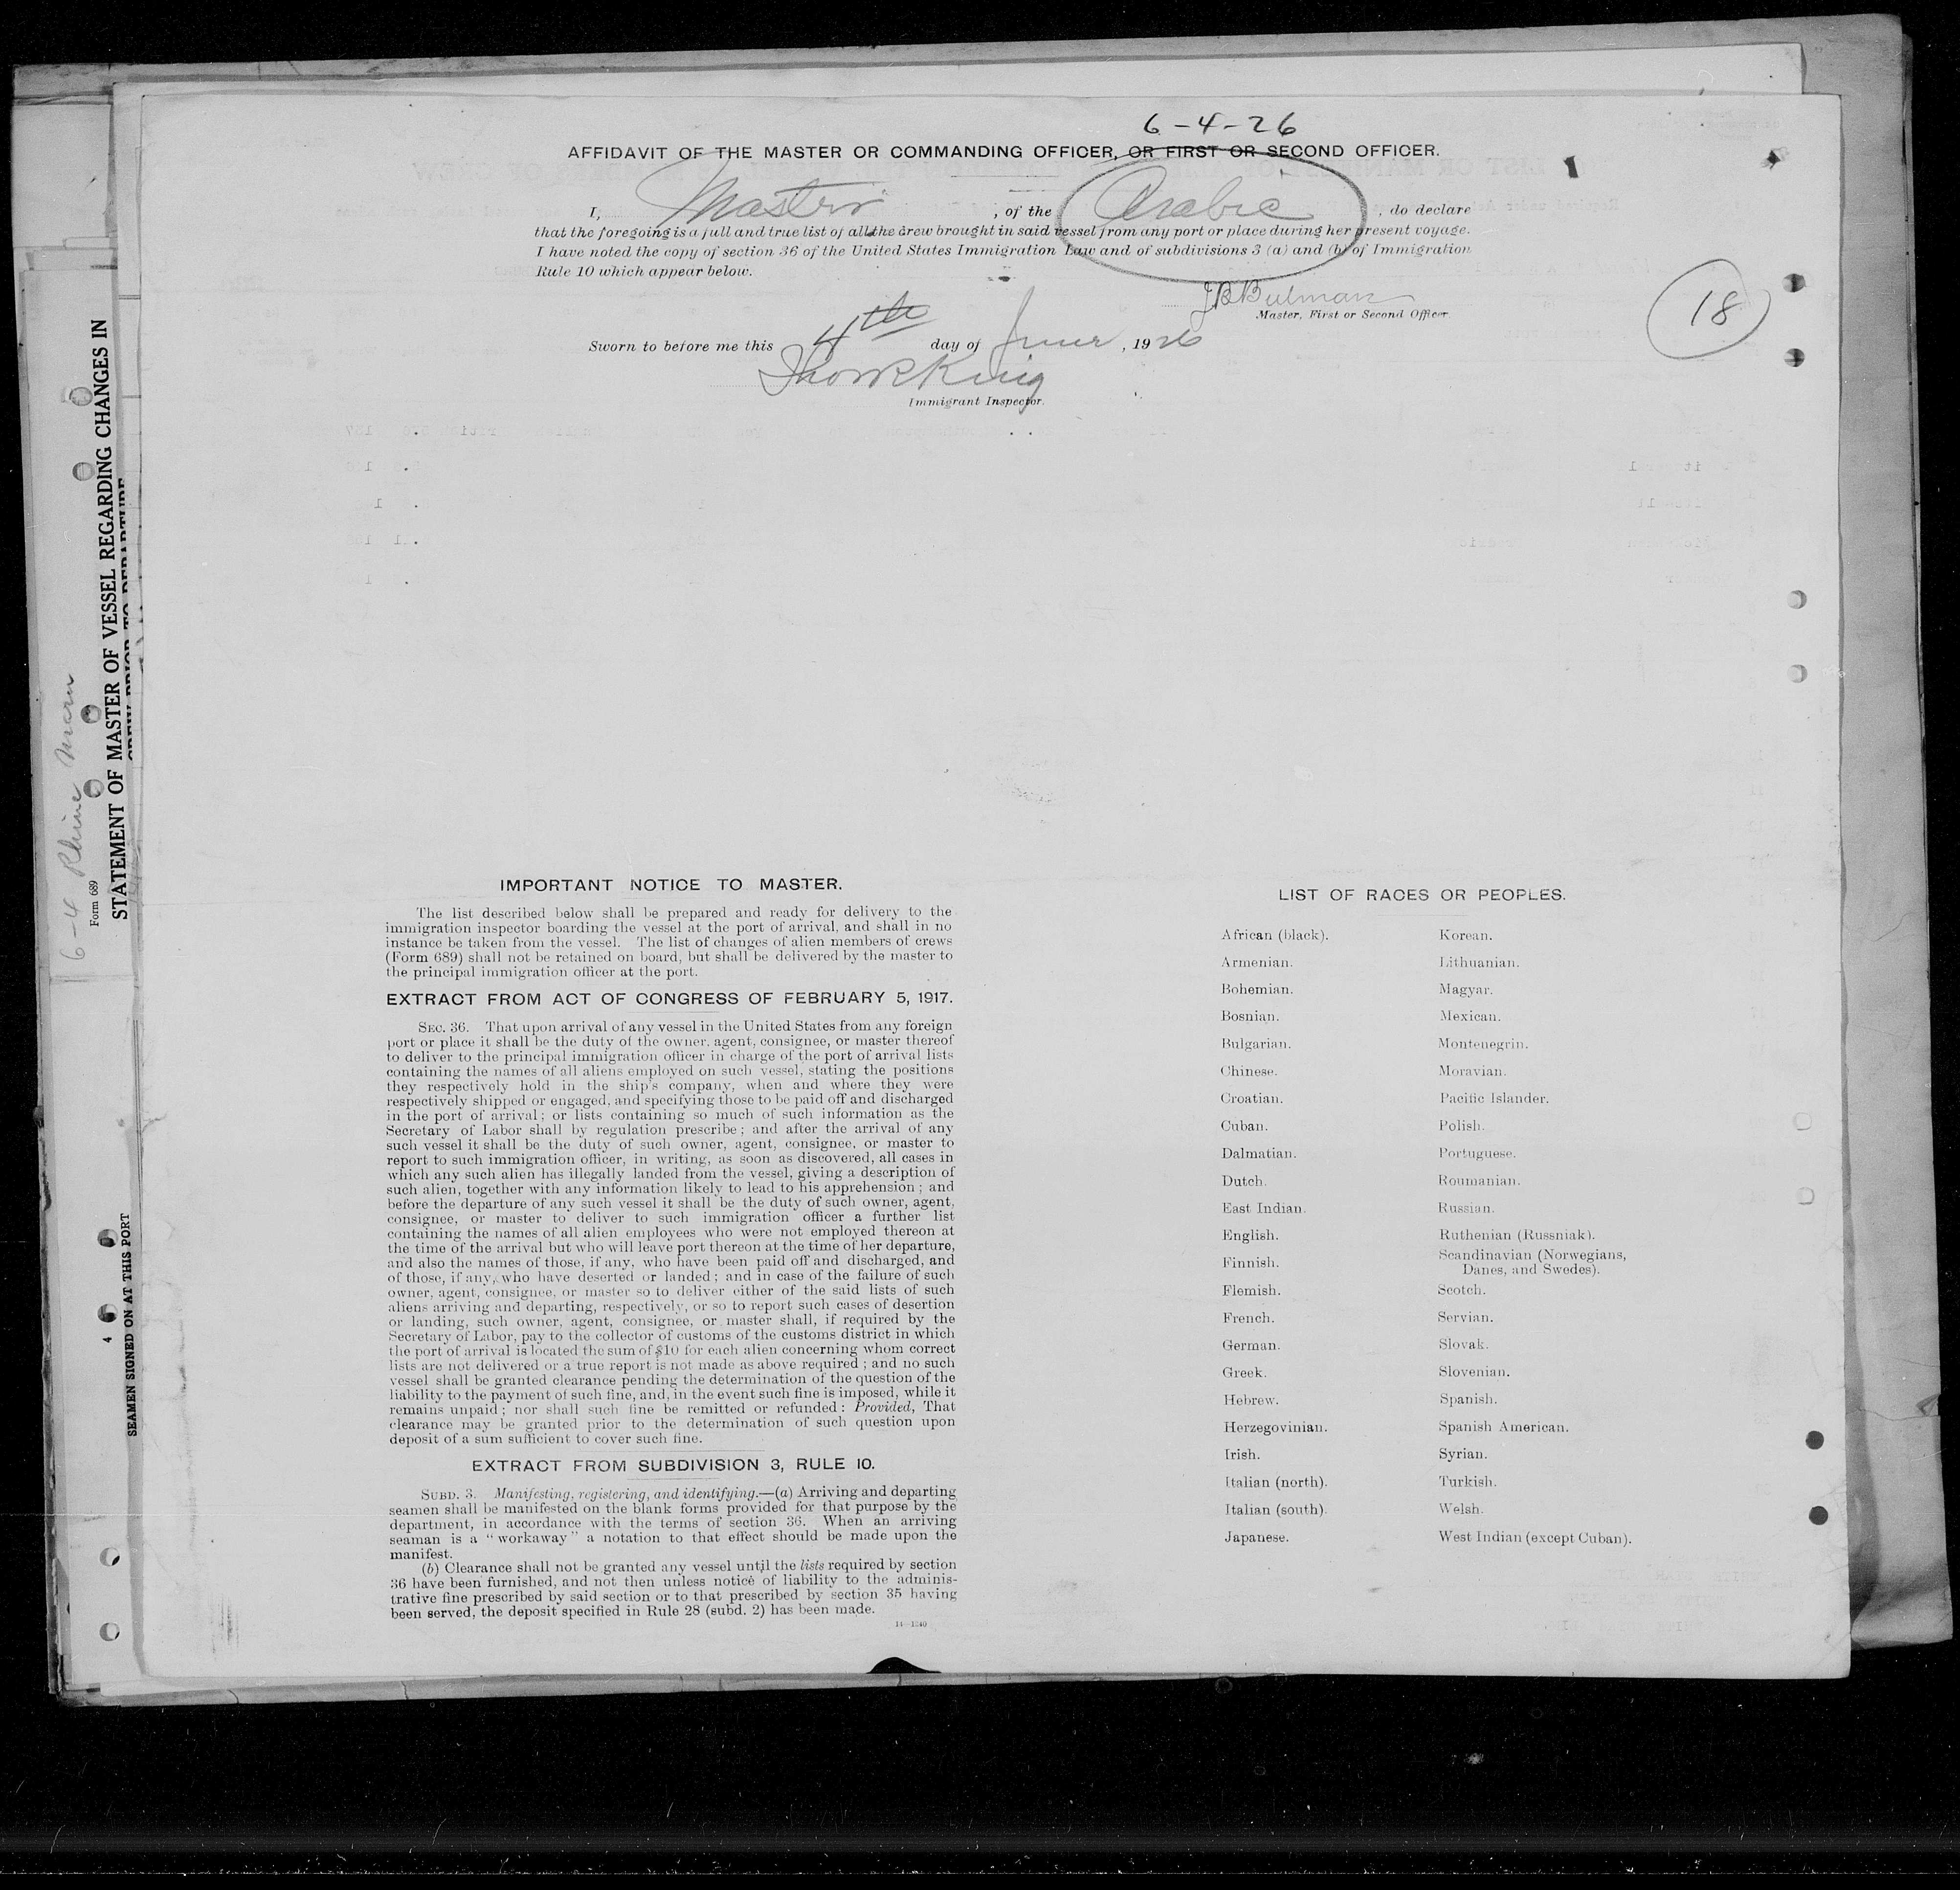 6-4-26
AFFIDAVIT OF THE MASTER OR COMMANDING OFFICER, OR FIRST OR SECOND OFFICER.
I, Master, of the Arabic, do declare
that the foregoing is a full and true list of all the crew brought in said vessel from any port or place during her present voyage.
I have noted the copy of section 36 of the United States Immigration Law and of subdivisions 3 (a) and (b) of Immigration
Rule 10 which appear below.
JB Bulman
Master, First or Second Officer
18
Sworn to before me this 4th day of June, 1926
Thos R King
Immigrant Inspector.
IMPORTANT NOTICE TO MASTER.
The list described below shall be prepared and ready for delivery to the
immigration inspector boarding the vessel at the port of arrival, and shall in no
instance be taken from the vessel. The list of changes of alien members of crews
(Form 689) shall not be retained on board, but shall be delivered by the master to
the principal immigration officer at the port.
EXTRACT FROM ACT OF CONGRESS OF FEBRUARY 5, 1917.
SEC. 36. That upon arrival of any vessel in the United States from any foreign
port or place it shall be the duty of the owner, agent, consignee, or master thereof
to deliver to the principal immigration officer in charge of the port of arrival lists
containing the names of all aliens employed on such vessel, stating the positions
they respectively hold in the ship's company, when and where they were
respectively shipped or engaged, and specifying those to be paid off and discharged
in the port of arrival; or lists containing so much of such information as the
Secretary of Labor shall by regulation prescribe; and after the arrival of any
such vessel it shall be the duty of such owner, agent, consignee, or master to
report to such immigration officer, in writing, as soon as discovered, all cases in
which any such alien has illegally landed from the vessel, giving a description of
such alien, together with any information likely to lead to his apprehension; and
before the departure of any such vessel it shall be the duty of such owner, agent,
consignee, or master to deliver to such immigration officer a further list
containing the names of all alien employees who were not employed thereon at
the time of the arrival but who will leave port thereon at the time of her departure,
and also the names of those, if any, who have been paid off and discharged, and
of those, if any, who have deserted or landed; and in case of the failure of such
owner, agent, consignee, or master so to deliver either of the said lists of such
aliens arriving and departing, respectively, or so to report such cases of desertion
or landing, such owner, agent, consignee, or master shall, if required by the
Secretary of Labor, pay to the collector of customs of the customs district in which
the port of arrival is located the sum of $10 for each alien concerning whom correct
lists are not delivered or a true report is not made as above required; and no such
vessel shall be granted clearance pending the determination of the question of the
liability to the payment of such fine, and, in the event such fine is imposed, while it
remains unpaid; nor shall such fine be remitted or refunded: Provided, That
clearance may be granted prior to the determination of such question upon
deposit of a sum sufficient to cover such fine.
EXTRACT FROM SUBDIVISION 3, RULE 10.
SUBD. 3. Manifesting, registering, and identifying.—(a) Arriving and departing
seamen shall be manifested on the blank forms provided for that purpose by the
department, in accordance with the terms of section 36. When an arriving
seaman is a "workaway" a notation to that effect should be made upon the
manifest.
(b) Clearance shall not be granted any vessel until the lists required by section
36 have been furnished, and not then unless notice of liability to the adminis-
trative fine prescribed by said section or to that prescribed by section 35 having
been served, the deposit specified in Rule 28 (subd. 2) has been made.
14—1240
LIST OF RACES OR PEOPLES.
African (black).
Armenian.
Bohemian.
Bosnian.
Bulgarian.
Chinese.
Croatian.
Cuban.
Dalmatian.
Dutch.
East Indian.
English.
Finnish.
Flemish.
French.
German.
Greek.
Hebrew.
Herzegovinian.
Irish.
Italian (north).
Italian (south).
Japanese.
Korean.
Lithuanian.
Magyar.
Mexican.
Montenegrin.
Moravian.
Pacific Islander.
Polish.
Portuguese.
Roumanian.
Russian.
Ruthenian (Russniak).
Scandinavian (Norwegians,
Danes, and Swedes).
Scotch.
Servian.
Slovak.
Slovenian.
Spanish.
Spanish American.
Syrian.
Turkish.
Welsh.
West Indian (except Cuban).
6-4 Rhine Maru
Form 689
STATEMENT OF MASTER OF VESSEL REGARDING CHANGES IN
CREW PRIOR TO DEPARTURE
4
SEAMEN SIGNED ON AT THIS PORT